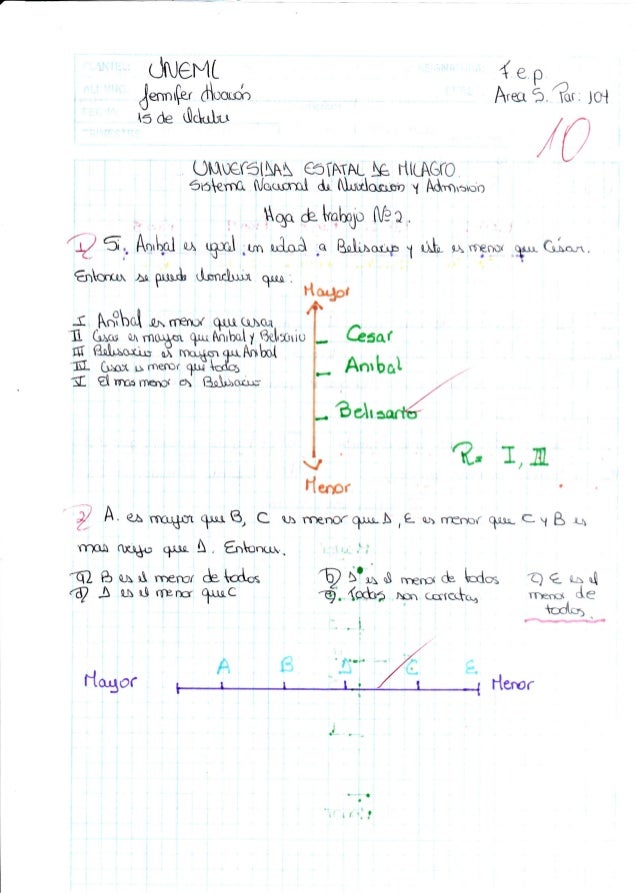 UNEMI
F e p.
Jennifer Huacón
Area 5. Par: 104
15 de Octubre
10
UNIVERSIDAD ESTATAL DE MILAGRO.
Sistema Nacional de Nivelacion y Admision
Hoja de trabajo Nº 2.
1) Si, Anibal es igual en edad a Belisario y éste es menor que César.
Entonces se puede concluir que:
Mayor
I Anibal es menor que cesar
II Cesar es mayor que Anibal y Belisario
III Belisario es mayor que Anibal
IV Cesar es menor que todos
V El mas menor es Belisario
Cesar
Anibal
Belisario
R= I, II
Menor
2) A. es mayor que B, C es menor que D, E es menor que C y B es
mas viejo que D. Entonces.
a) B es el menor de todos
b) D es el menor de todos
c) E es el menor de todos.
d) D es el menor que C
e). Todas son correctas
A B D C E
Mayor
Menor